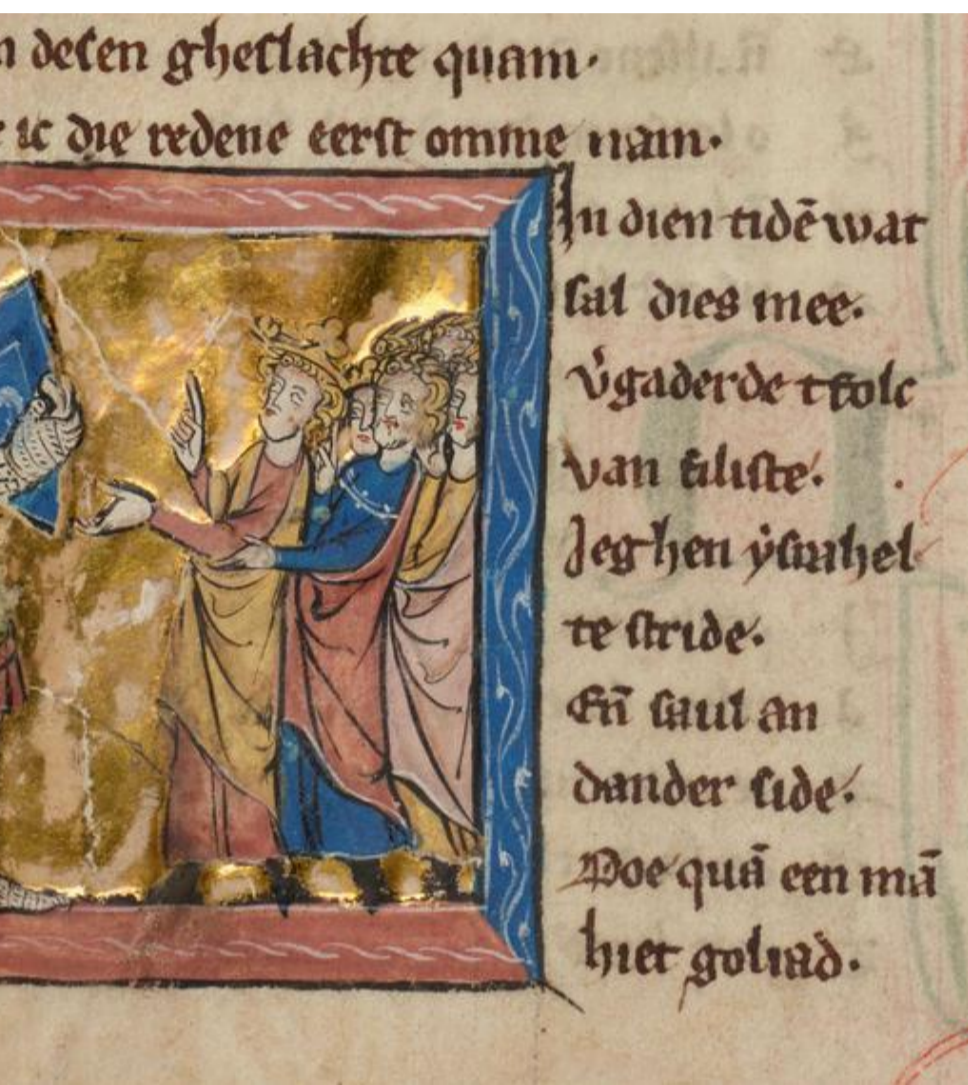 n desen gheslachte quam·
ic die redene eerst omme nam·
In dien tidē wat
sal dies mee·
v̓gaderde tfolc
van filiste·
Jeghen ẏsrahel
te stride·
Eñ saul an
dander side·
Doe quā een mā
hiet goliad·